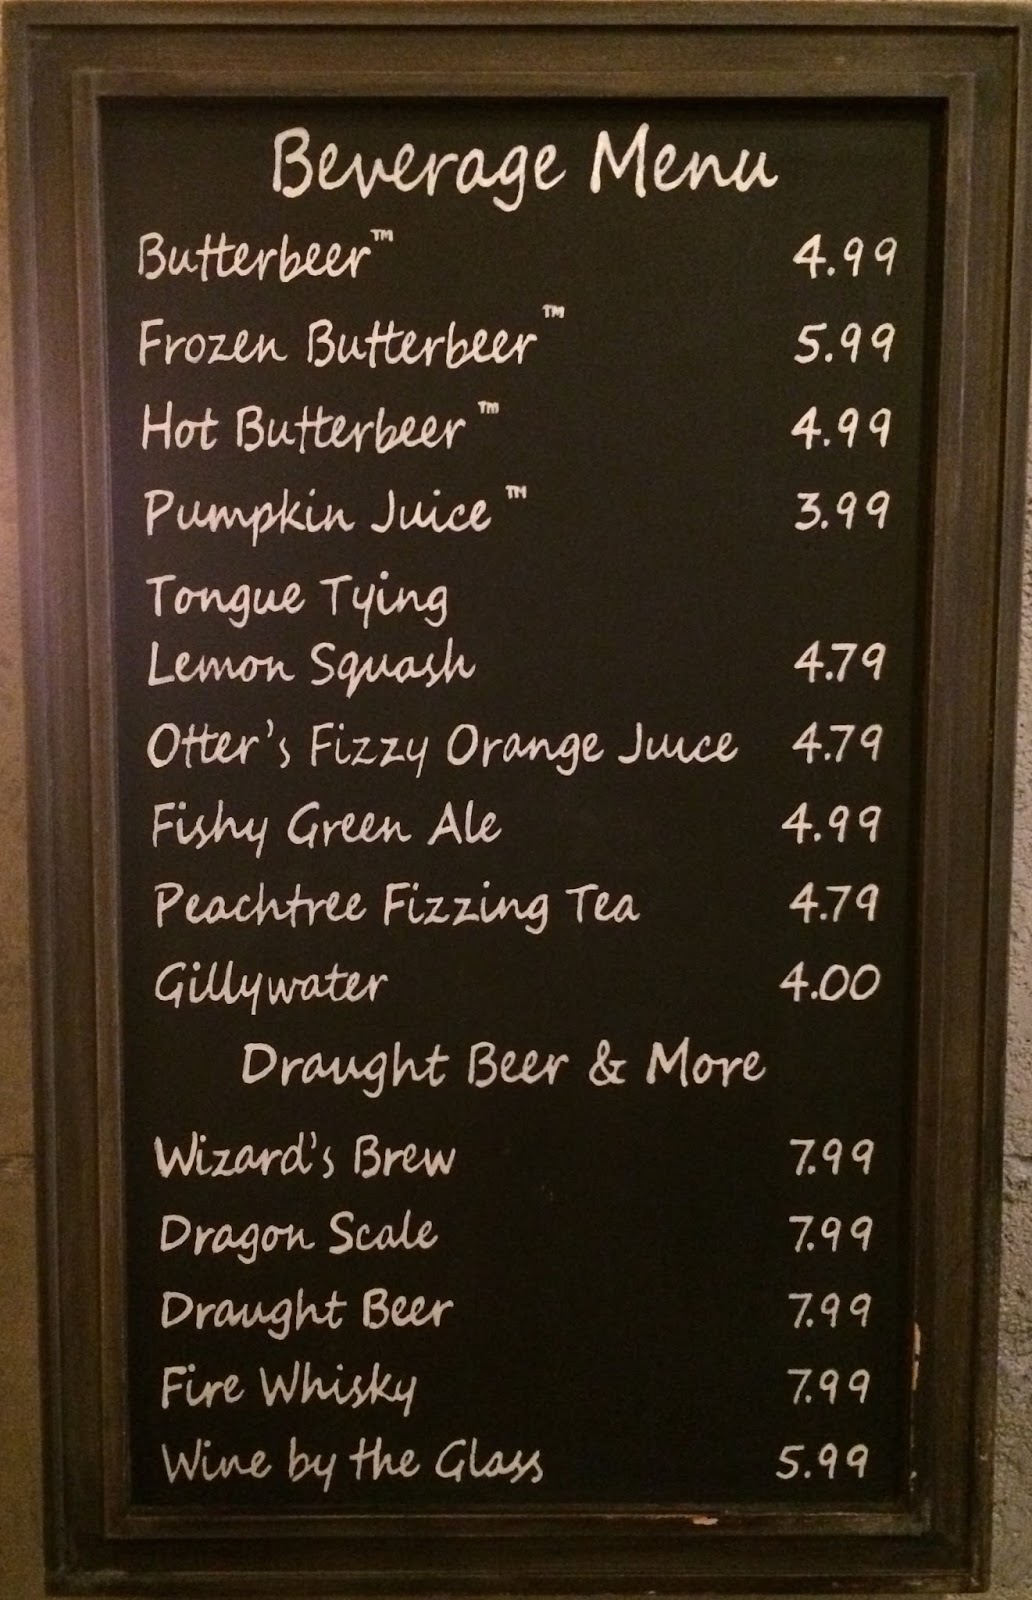 Beverage Menu
Butterbeer™ 4.99
Frozen Butterbeer™ 5.99
Hot Butterbeer™ 4.99
Pumpkin Juice™ 3.99
Tongue Tying
Lemon Squash 4.79
Otter's Fizzy Orange Juice 4.79
Fishy Green Ale 4.99
Peachtree Fizzing Tea 4.79
Gillywater 4.00
Draught Beer & More
Wizard's Brew 7.99
Dragon Scale 7.99
Draught Beer 7.99
Fire Whisky 7.99
Wine by the Glass 5.99